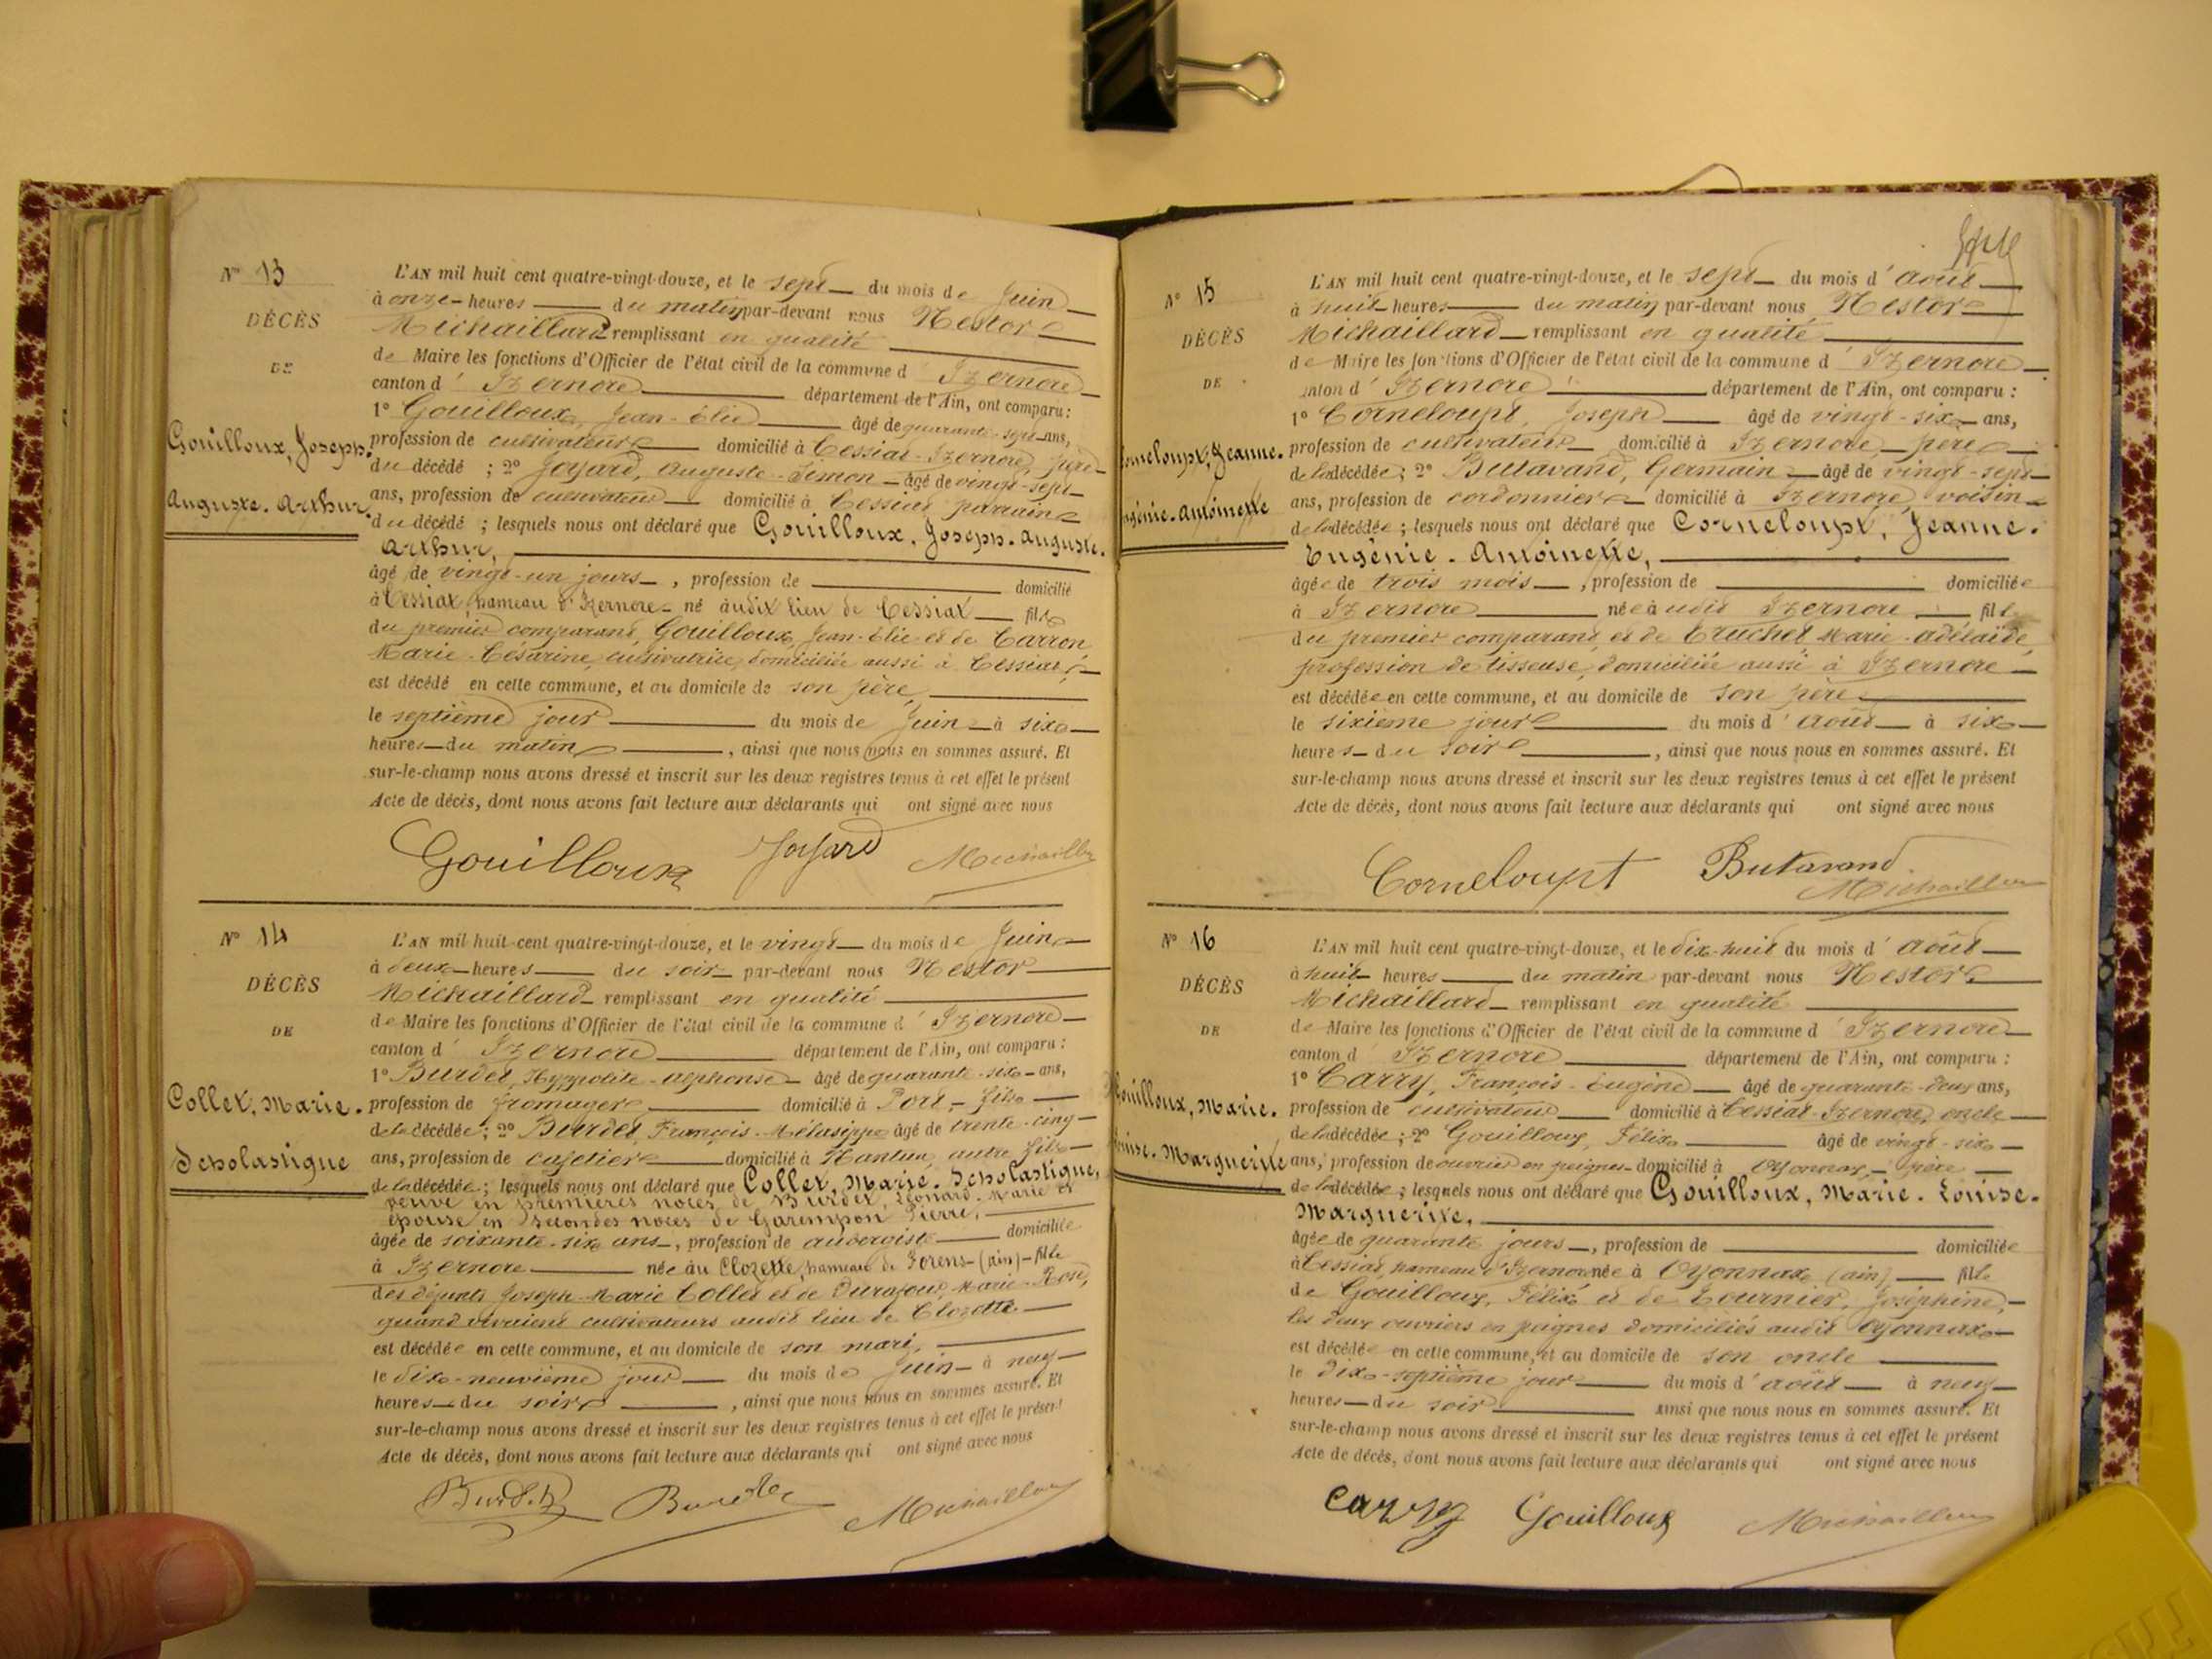 N° 13
DÉCÈS
DE
Gouilloux, Joseph.
Auguste. Arthur.
L'AN mil huit cent quatre-vingt-douze, et le sept du mois de Juin
à onze heures du matin par-devant nous Nestor
Michaillard remplissant en qualité
de Maire les fonctions d'Officier de l'état civil de la commune d'Izernore
canton d'Izernore département de l'Ain, ont comparu :
1° Gouilloux, Jean-Élie âgé de quarante-sept ans,
profession de cultivateur domicilié à Cessiat-Izernore, père
du décédé ; 2° Joyard, Auguste-Simon âgé de vingt-sept
ans, profession de cultivateur domicilié à Cessiat parrain
du décédé ; lesquels nous ont déclaré que Gouilloux, Joseph. Auguste.
Arthur,
âgé de vingt-un jours, profession de domicilié
à Cessiat, hameau d'Izernore né audit lieu de Cessiat fils
du premier comparant, Gouilloux, Jean-Élie et de Carron
Marie-Césarine, cultivatrice, domiciliée aussi à Cessiat,
est décédé en cette commune, et au domicile de son père,
le septième jour du mois de Juin à six
heures du matin, ainsi que nous nous en sommes assuré. Et
sur-le-champ nous avons dressé et inscrit sur les deux registres tenus à cet effet le présent
Acte de décès, dont nous avons fait lecture aux déclarants qui ont signé avec nous
Gouilloux Joyard Michaillard
N° 14
DÉCÈS
DE
Collet, Marie.
Scholastique
L'AN mil huit cent quatre-vingt-douze, et le vingt du mois de Juin
à deux heures du soir par-devant nous Nestor
Michaillard remplissant en qualité
de Maire les fonctions d'Officier de l'état civil de la commune d'Izernore
canton d'Izernore département de l'Ain, ont comparu :
1° Burdet, Hyppolite-Alphonse âgé de quarante-six ans,
profession de fromager domicilié à Port, fils
de la décédée ; 2° Burdet, François-Mélasippe âgé de trente-cinq
ans, profession de cafetier domicilié à Nantua, autre fils
de la décédée ; lesquels nous ont déclaré que Collet, Marie. Scholastique,
veuve en premières noces de Burdet, Léonard-Marie et
épouse en secondes noces de Garempon Pierre,
âgée de soixante-six ans, profession de aubergiste domiciliée
à Izernore née au Clozette, hameau de Forens (ain) fille
des défunts Joseph-Marie Collet et de Durafour, Marie-Rose,
quand vivaient cultivateurs audit lieu de Clozette
est décédée en cette commune, et au domicile de son mari,
le dix-neuvième jour du mois de Juin à neuf
heures du soir, ainsi que nous nous en sommes assuré. Et
sur-le-champ nous avons dressé et inscrit sur les deux registres tenus à cet effet le présent
Acte de décès, dont nous avons fait lecture aux déclarants qui ont signé avec nous
Burdet Burdet Michaillard
N° 15
DÉCÈS
DE
Corneloupt, Jeanne.
Eugénie-Antoinette
L'AN mil huit cent quatre-vingt-douze, et le sept du mois d'août
à huit heures du matin par-devant nous Nestor
Michaillard remplissant en qualité
de Maire les fonctions d'Officier de l'état civil de la commune d'Izernore
canton d'Izernore département de l'Ain, ont comparu :
1° Corneloupt, Joseph âgé de vingt-six ans,
profession de cultivateur domicilié à Izernore, père
de la décédée ; 2° Butavand, Germain âgé de vingt-sept
ans, profession de cordonnier domicilié à Izernore, voisin
de la décédée ; lesquels nous ont déclaré que Corneloupt, Jeanne.
Eugénie. Antoinette,
âgée de trois mois, profession de domiciliée
à Izernore née audit Izernore fille
du premier comparant, et de Cruchet, Marie-Adélaïde,
profession de tisseuse, domiciliée aussi à Izernore
est décédée en cette commune, et au domicile de son père
le sixième jour du mois d'août à six
heures du soir, ainsi que nous nous en sommes assuré. Et
sur-le-champ nous avons dressé et inscrit sur les deux registres tenus à cet effet le présent
Acte de décès, dont nous avons fait lecture aux déclarants qui ont signé avec nous
Corneloupt Butavand Michaillard
N° 16
DÉCÈS
DE
Gouilloux, Marie.
Louise. Marguerite
L'AN mil huit cent quatre-vingt-douze, et le dix-huit du mois d'août
à huit heures du matin par-devant nous Nestor
Michaillard remplissant en qualité
de Maire les fonctions d'Officier de l'état civil de la commune d'Izernore
canton d'Izernore département de l'Ain, ont comparu :
1° Carry, François-Eugène âgé de quarante-deux ans,
profession de cultivateur domicilié à Cessiat-Izernore, oncle
de la décédée ; 2° Gouilloux, Félix âgé de vingt-six
ans, profession de ouvrier en peignes domicilié à Oyonnax, père
de la décédée ; lesquels nous ont déclaré que Gouilloux, Marie. Louise-
Marguerite,
âgée de quarante jours, profession de domiciliée
à Cessiat, hameau d'Izernore née à Oyonnax (ain) fille
de Gouilloux, Félix et de Tournier, Joséphine,
les deux ouvriers en peignes domiciliés audit Oyonnax
est décédée en cette commune, et au domicile de son oncle
le dix-septième jour du mois d'août à neuf
heures du soir ainsi que nous nous en sommes assuré. Et
sur-le-champ nous avons dressé et inscrit sur les deux registres tenus à cet effet le présent
Acte de décès, dont nous avons fait lecture aux déclarants qui ont signé avec nous
Carry Gouilloux Michaillard